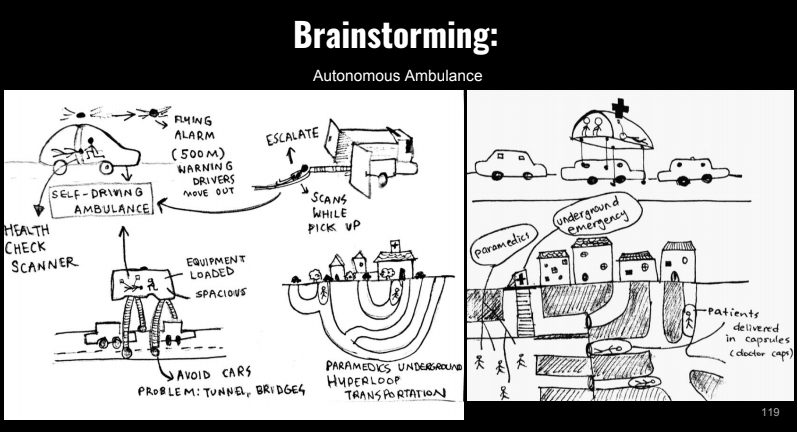 Brainstorming:
Autonomous Ambulance
FLYING
ALARM
(500M)
WARNING
DRIVERS
MOVE OUT
SELF-DRIVING
AMBULANCE
HEALTH
CHECK
SCANNER
ESCALATE
SCANS
WHILE
PICK UP
EQUIPMENT
LOADED
SPACIOUS
AVOID CARS
PROBLEM: TUNNEL, BRIDGES
PARAMEDICS UNDERGROUND
HYPERLOOP
TRANSPORTATION
paramedics
underground
emergency
Patients
delivered
in capsules
(doctor caps)
119